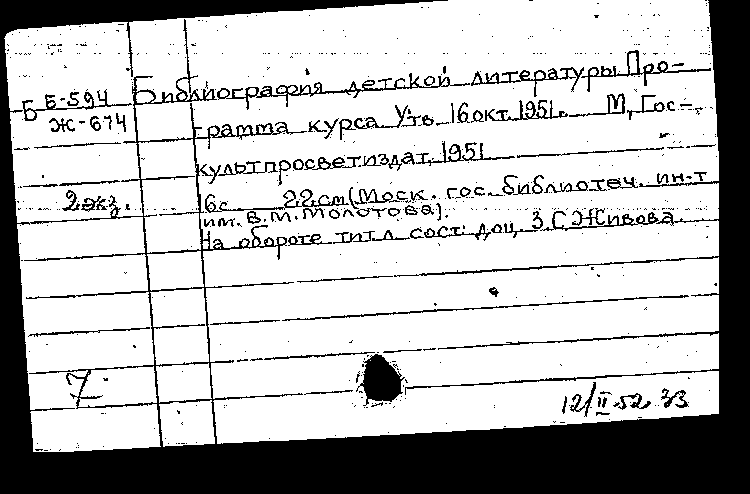 Б Б-594 Библиография детской литературы Про-
Ж-674 грамма курса Утв. 16 окт. 1951. М, Гос-
культпросветиздат, 1951
2 экз. 16 с. 22 см (Моск. гос. библиотеч. ин-т
им. В. М. Молотова).
На обороте тит. л сост: доц. З. С. Живова.
7
12/II 52 33